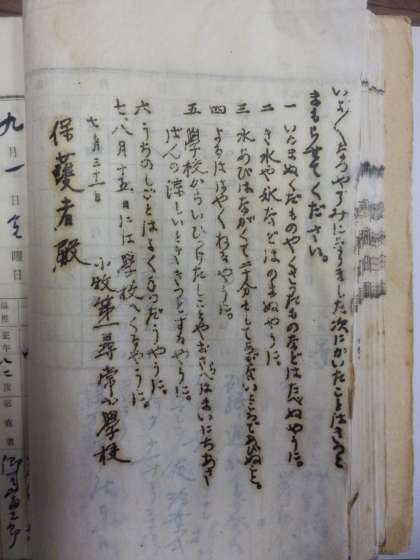 いよ〳〵なつやすみになりました次にかいたことはきつと
まもらせてください。
一 いたまぬくだものやくさつたものなどはたべぬやうに。
二 きみづや氷などはのまぬやうに。
三 水あびはながくて二十分そしてあぶないところであびぬこと。
四 よるははやくねるやうに。
五 學校からいひつけたしごとやおさらへはまいにちあさ
ばんの涼しいときをきつとするやうに。
六 うちのしごとはよくてつだうやうに。
七、八月十五日には學校へくるやうに。
七月三十一日
小牧第一尋常小學校
保護者殿
九月一日 曜日